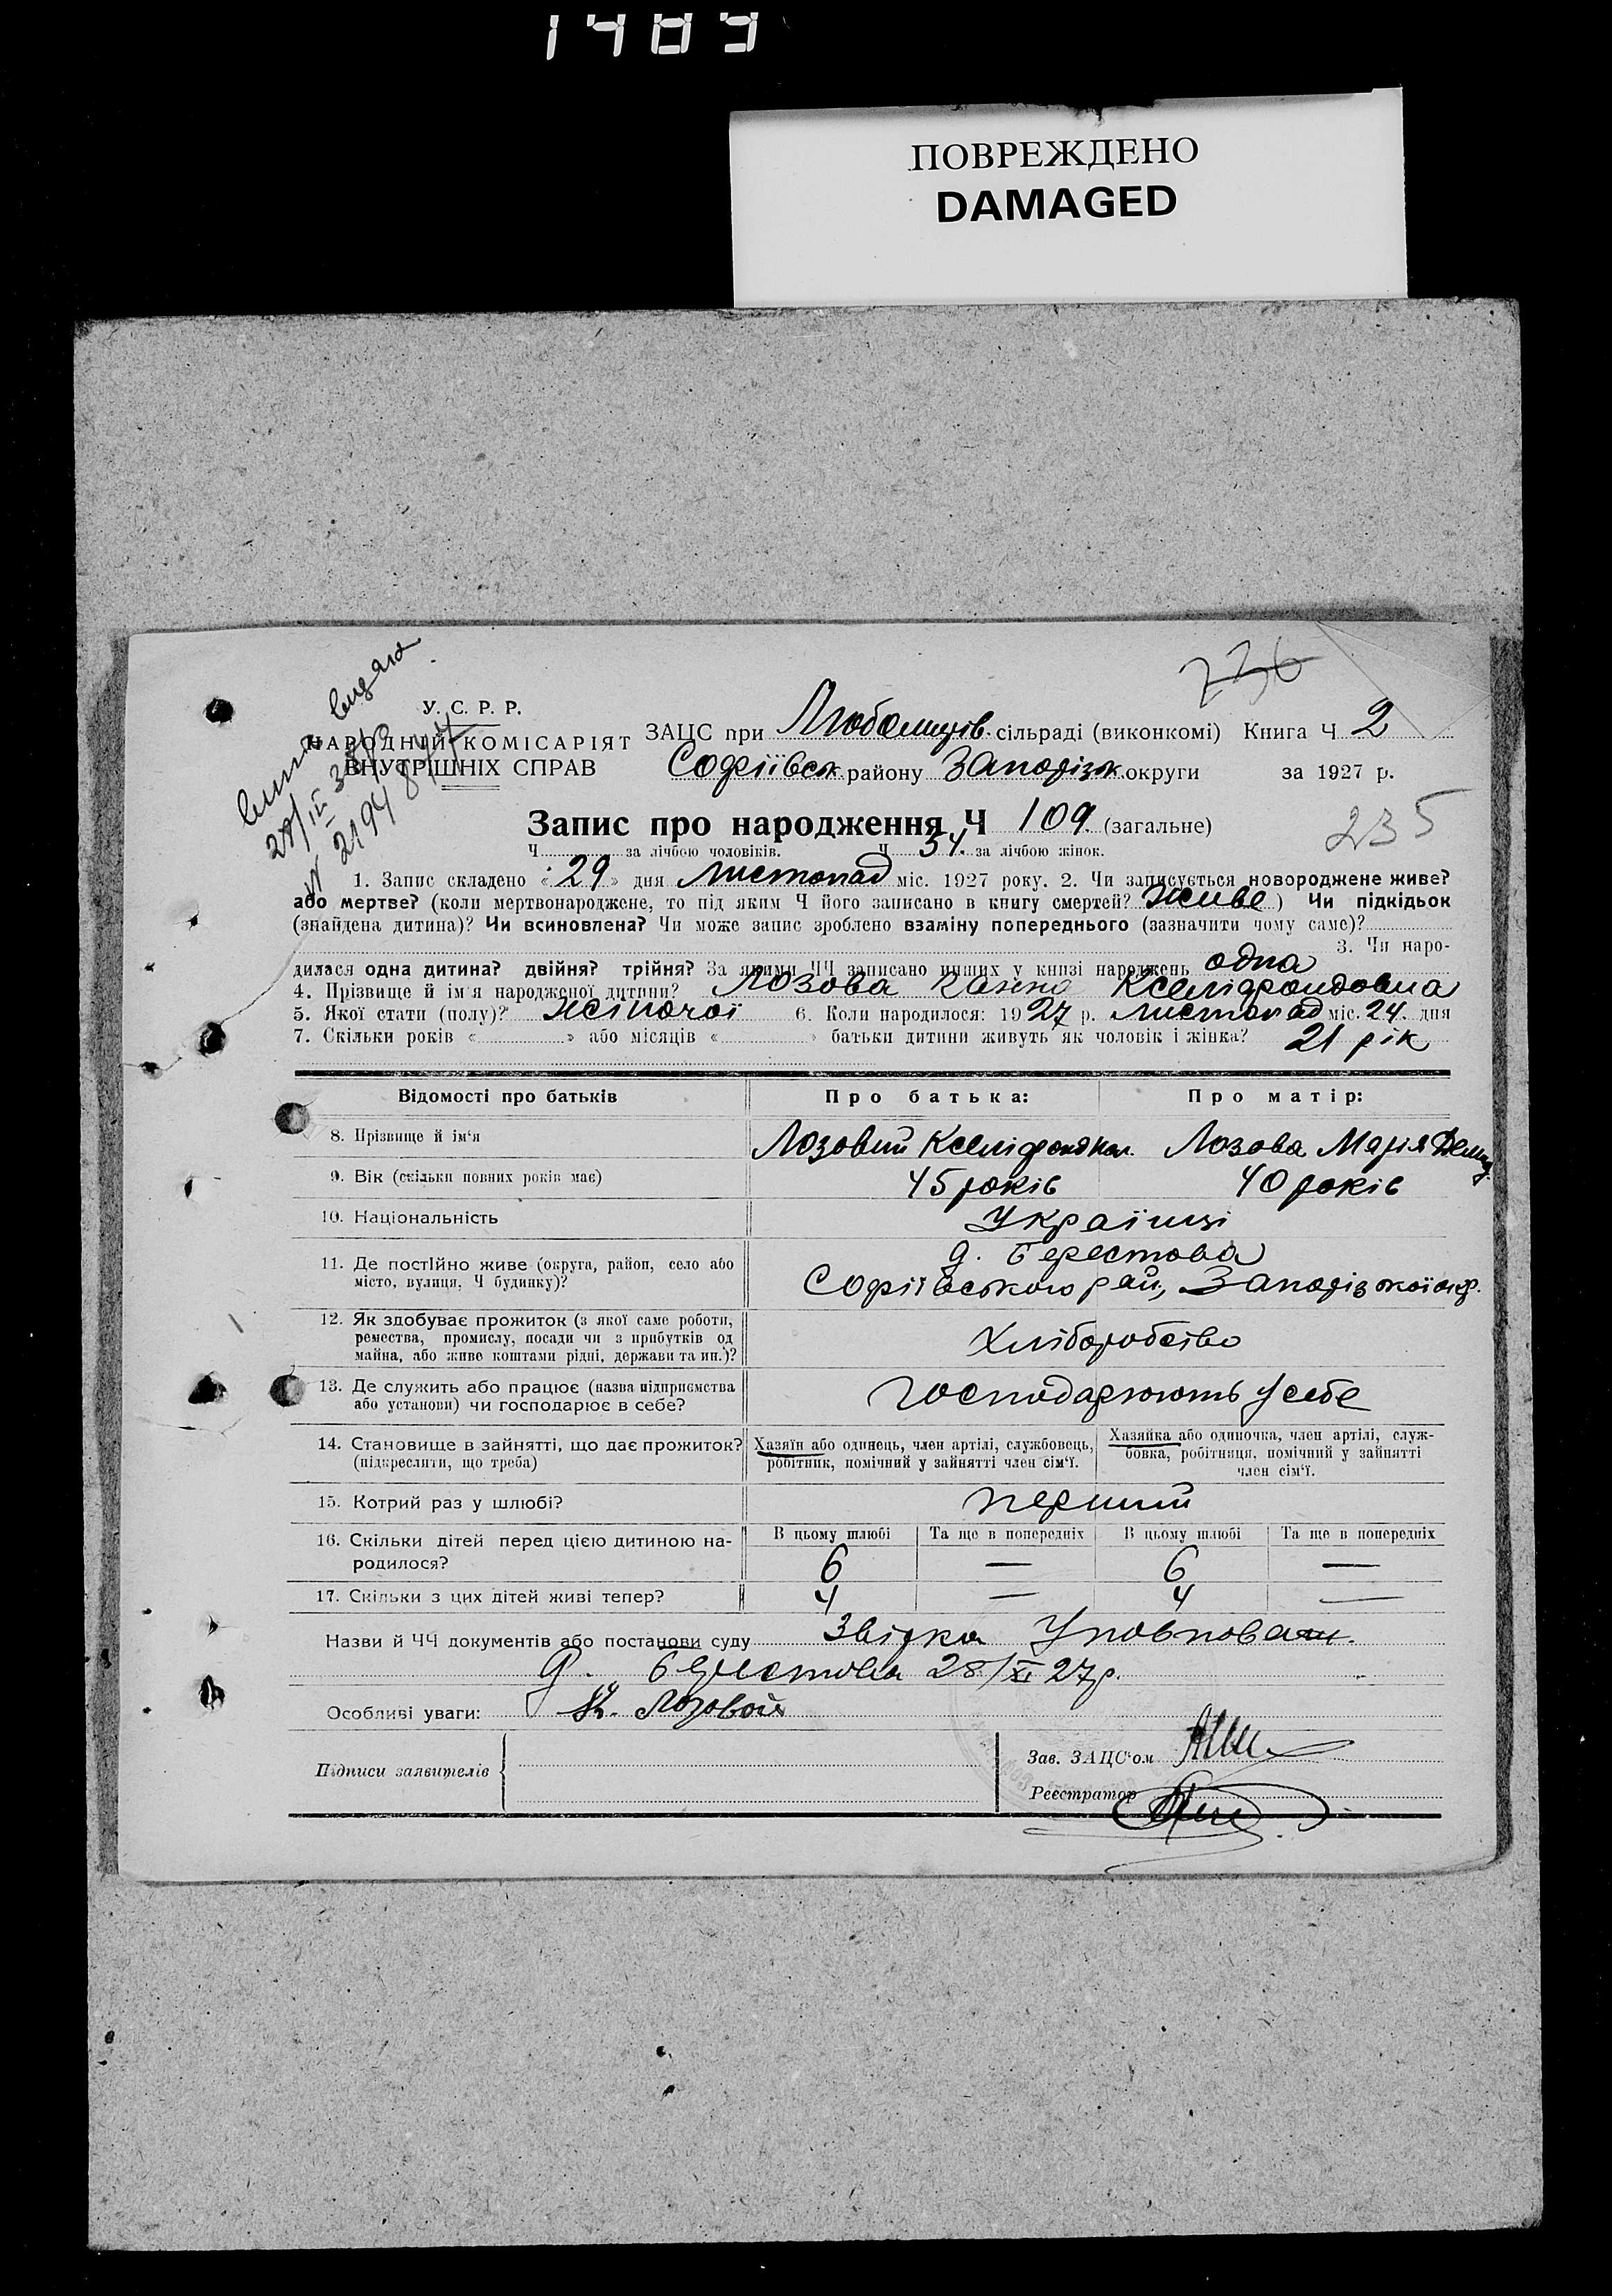 1489
ПОВРЕЖДЕНО
DAMAGED
736
235
У. С. Р. Р.
НАРОДНІЙ КОМІСАРІЯТ
ВНУТРІШНІХ СПРАВ
ЗАЦС при Любомирів. сільраді (виконкомі) Книга Ч 2
Софіївськ. району Запоріжж. округи за 1927 р.
Запис про народження Ч 109 (загальне)
Ч за лічбою чоловіків. Ч 54. за лічбою жінок.
1. Запис складено «29» дня Листопад міс. 1927 року. 2. Чи записується новороджене живе?
або мертве? (коли мертвонароджене, то під яким Ч його записано в книгу смертей? Живе) Чи підкідьок
(знайдена дитина)? Чи всиновлена? Чи може запис зроблено взаміну попереднього (зазначити чому саме)?
3. Чи наро-
дилася одна дитина? двійня? трійня? За якими ЧЧ записано инших у книзі народжень одна
4. Прізвище й ім'я народженої дитини? Лозова Ксенофондовна
5. Якої стати (полу)? жіночої 6. Коли народилося: 1927 р. Листопад міс. 24. дня
7. Скільки років « » або місяців « » батьки дитини живуть як чоловік і жінка? 21 рік
Відомості про батьків Про батька: Про матір:
8. Прізвище й ім'я Лозовий Лозова Марія
9. Вік (скільки повних років має) 45 років 40 років
10. Національність Українці
11. Де постійно живе (округа, район, село або
місто, вулиця, Ч будинку)?
д. Берестова
Софіївського рай, Запорізжої окр.
12. Як здобуває прожиток (з якої саме роботи,
ремества, промислу, посади чи з прибутків од
майна, або живе коштами рідні, держави та ин.)?
Хліборобство
13. Де служить або працює (назва підприємства
або установи) чи господарює в себе?
господарюють у себе
14. Становище в зайнятті, що дає прожиток?
(підкреслити, що треба)
Хазяїн або одинець, член артілі, службовець,
робітник, помічний у зайнятті член сім'ї.
Хазяйка або одиночка, член артілі, служ-
бовка, робітниця, помічний у зайнятті
член сім'ї.
15. Котрий раз у шлюбі? перший
16. Скільки дітей перед цією дитиною на-
родилося?
В цьому шлюбі Та ще в попередніх В цьому шлюбі Та ще в попередніх
6 — 6 —
17. Скільки з цих дітей живі тепер? 4 — 4 —
Назви й ЧЧ документів або постанови суду Звідка Уповноваж.
д. Берестова 28/XI 27р.
Особливі уваги: Лозовой
Підписи заявителів
Зав. ЗАЦС'ом
Реєстратор